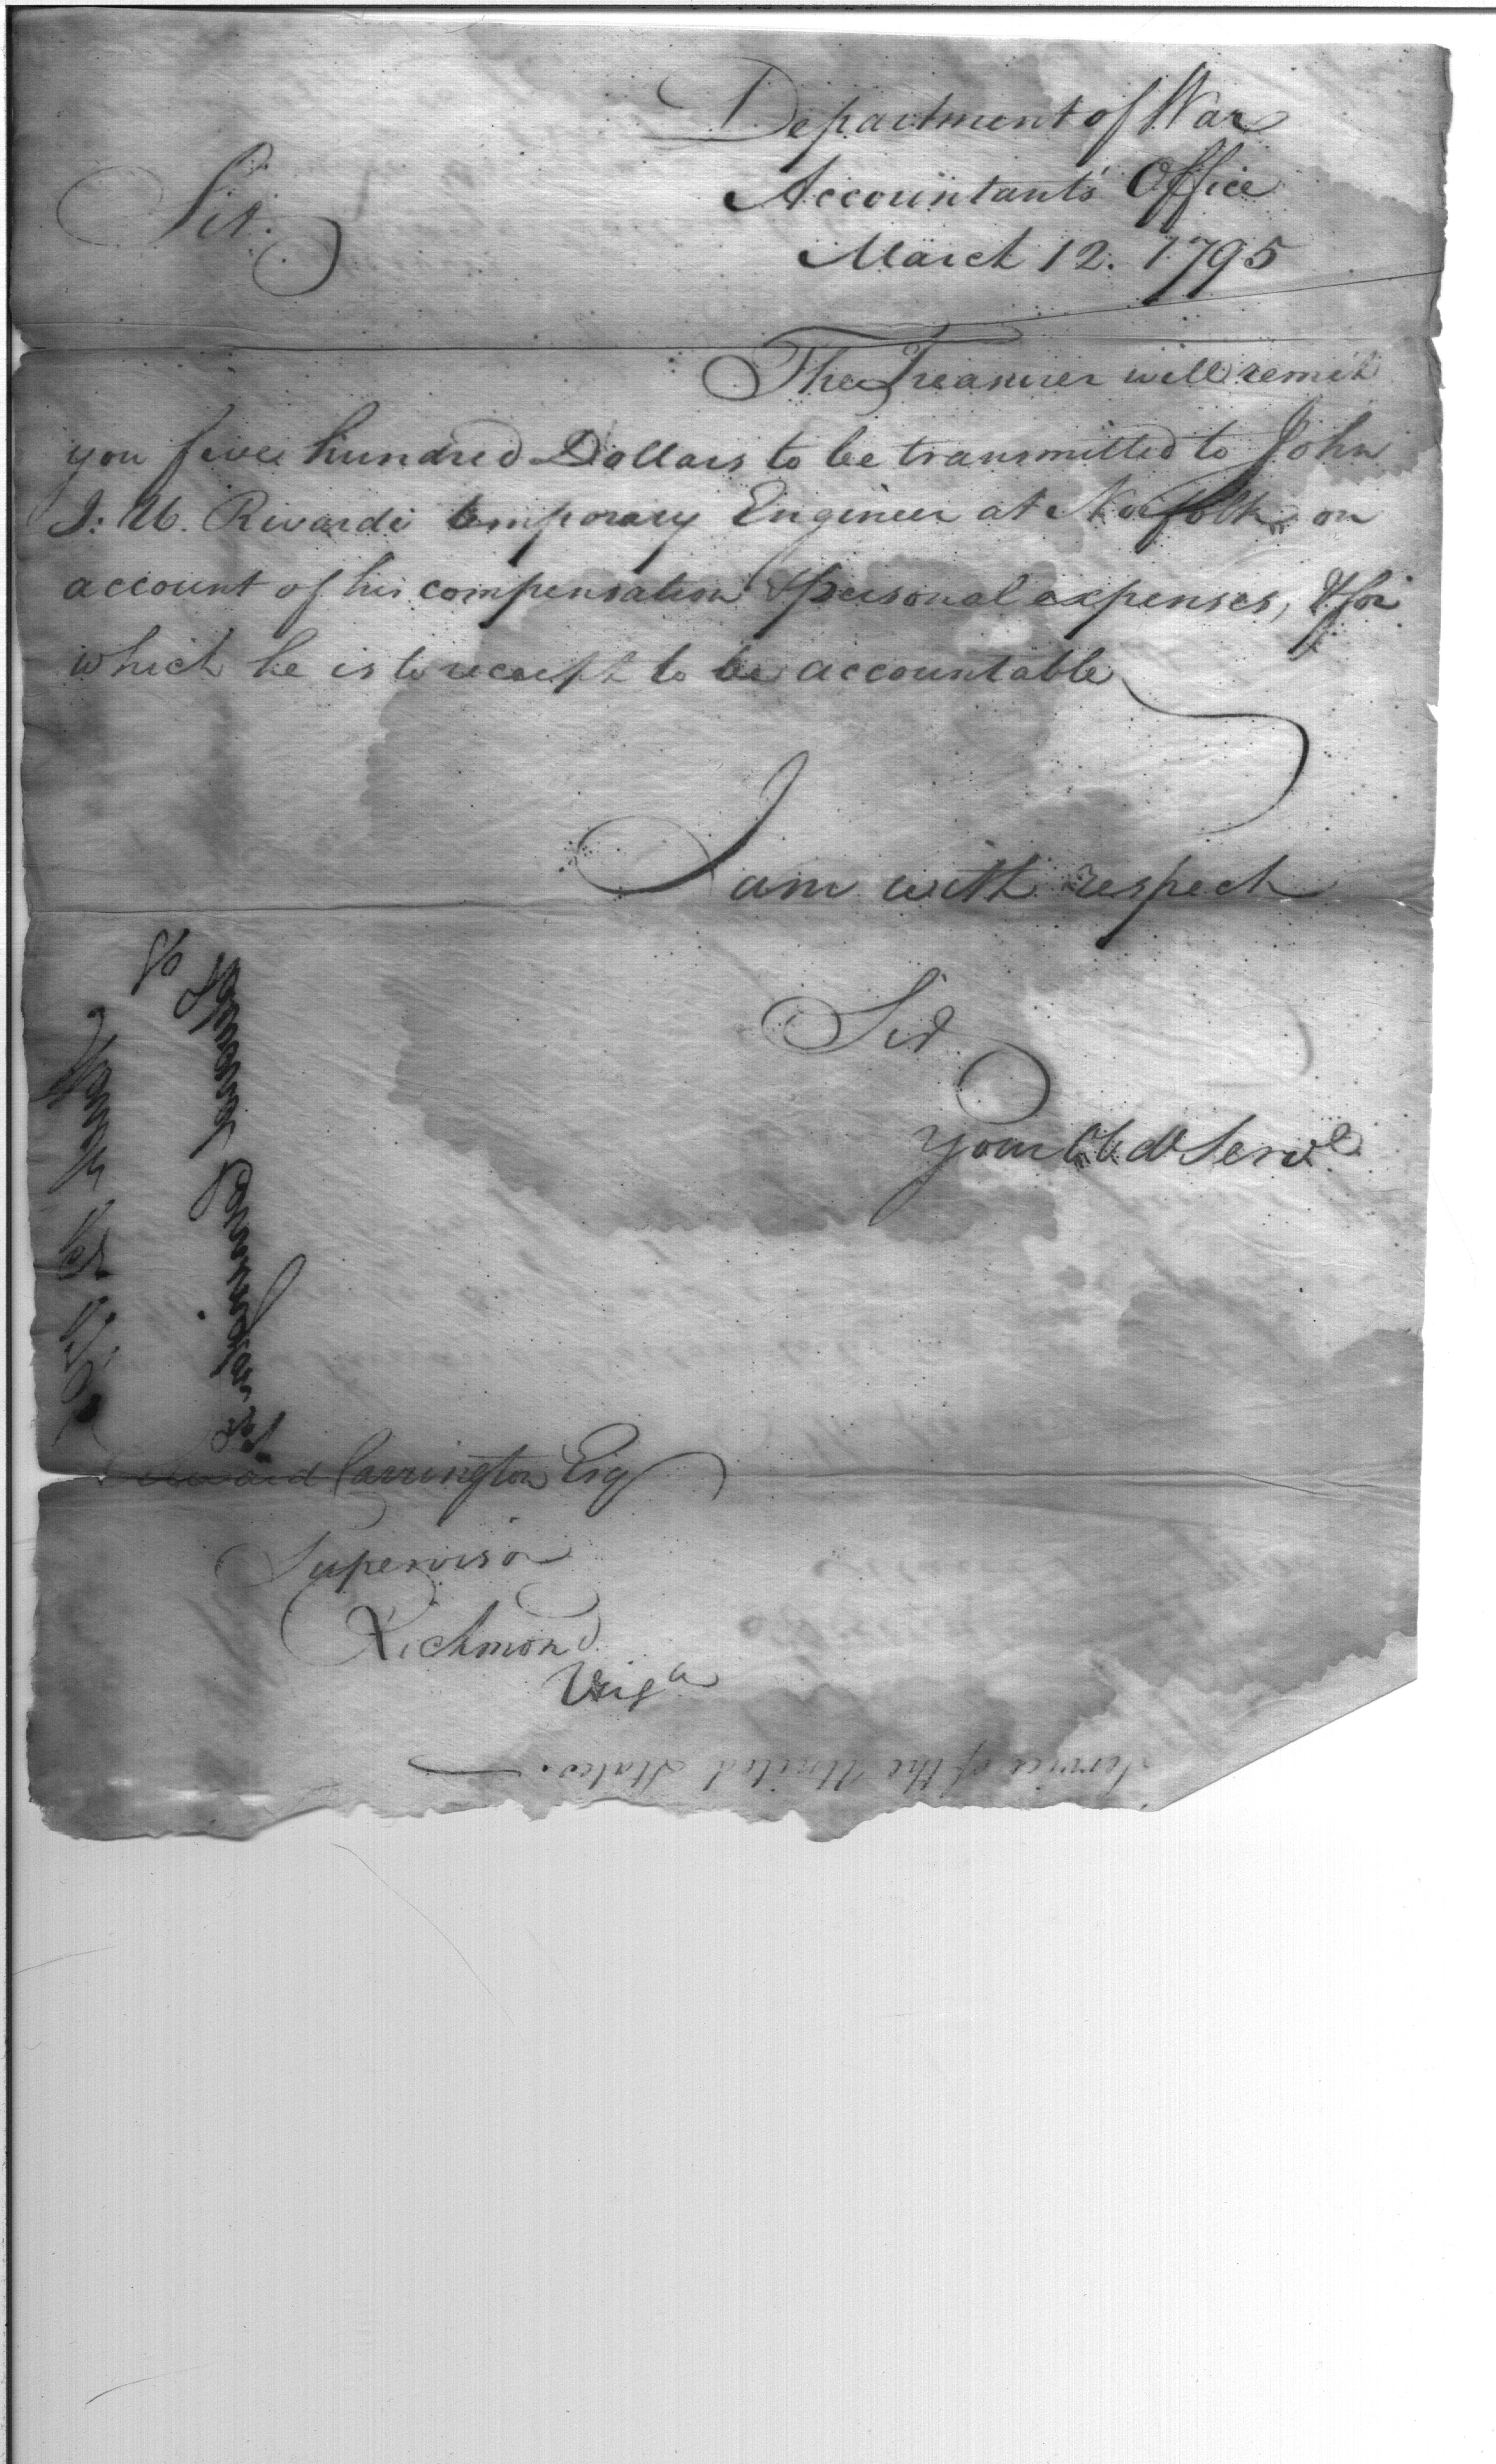 Department of War
Accountant's Office
March 12. 1795
Sir.
The Treasurer will remit
you five hundred Dollars to be transmitted to John
J: U. Rivardi temporary Engineer at Norfolk on
account of his compensation & personal expenses, & for
which he is to receipt to be accountable
I am with respect
Sir
Your Obdt Servt
Edward Carrington Esq
Supervisor
Richmond
Virga
To
Edward Carrington Esqr
Service of the United States.